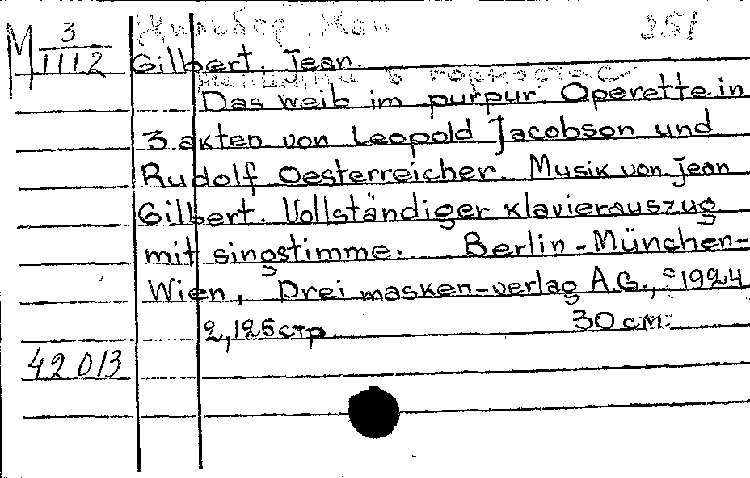 Жильбер, Жан 251
М 3/1112
Gilbert. Jean.
Женщина в горностае
Das weib im purpur. Operette in
3 akten von Leopold Jacobson und
Rudolf Oesterreicher. Musik von jean
Gilbert. Vollständiger klavierauszug
mit singstimme. Berlin-München-
Wien, Drei masken-verlag A.G., c1924
2,125 стр 30 см.
42013